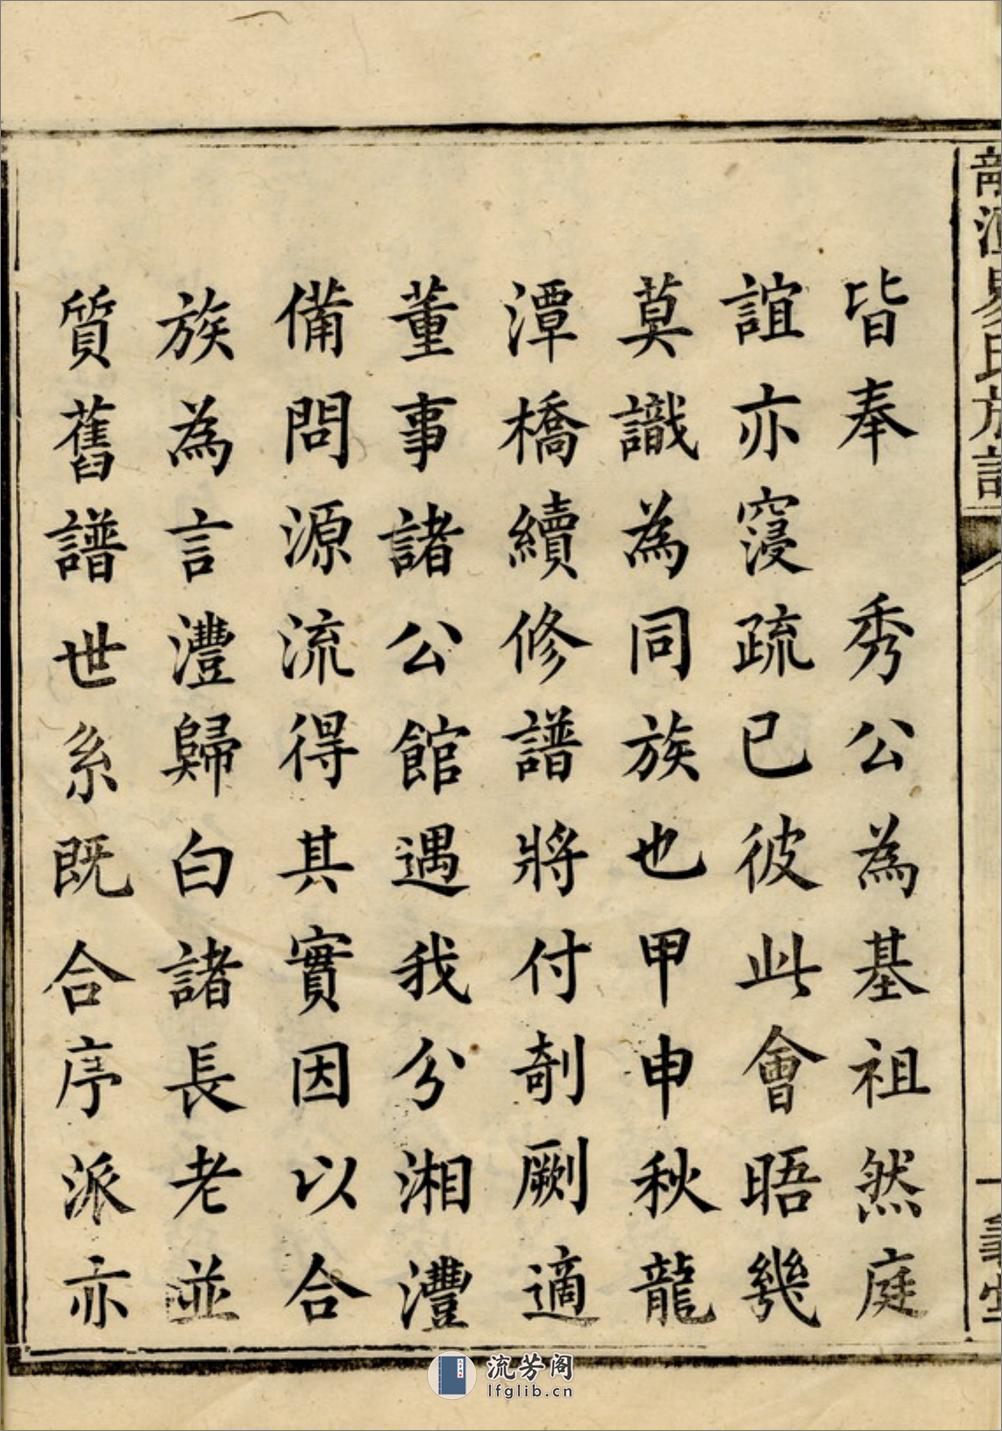 皆奉　秀公為基祖然庭
誼亦寖疏已彼此會晤幾
莫識為同族也甲申秋龍
潭橋續修譜將付剞劂適
董事諸公館遇我分湘灃
備問源流得其實因以合
族為言灃歸白諸長老並
質舊譜世系既合序派亦
易氏族譜
流芳阁
lfglib.cn